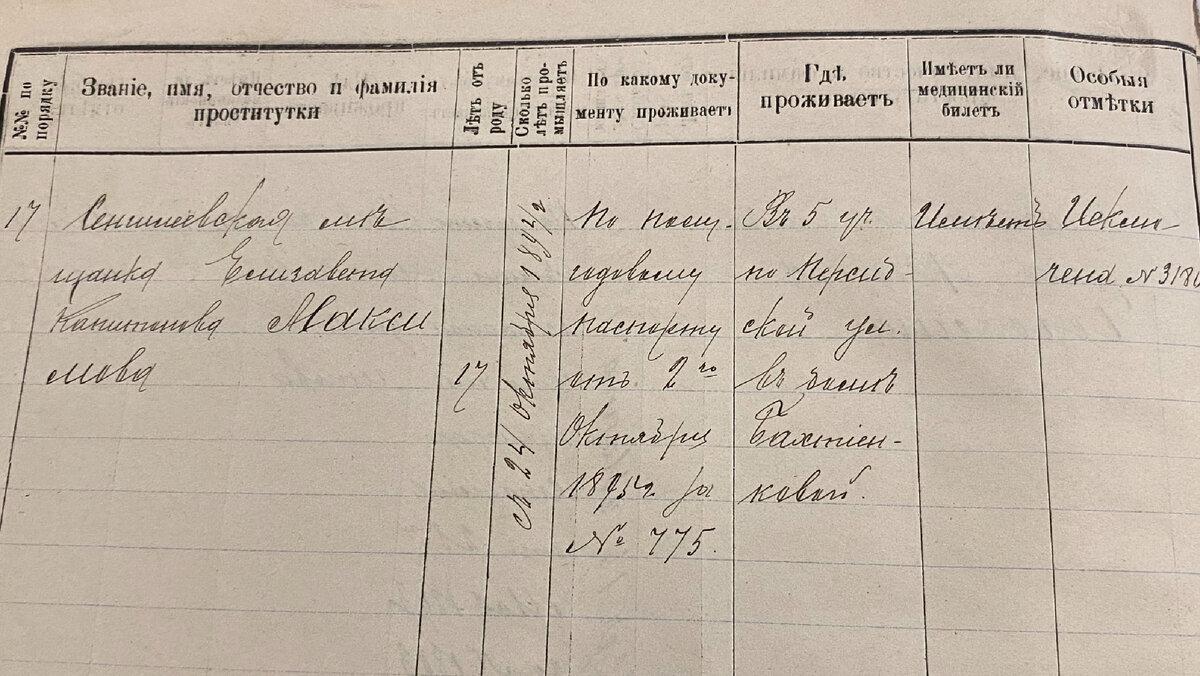 №№ по
порядку
Званіе, имя, отчество и фамилія
проститутки
Лѣтъ отъ
роду
Сколько
лѣтъ про-
мышляетъ
По какому доку-
менту проживаетъ
Гдѣ
проживаетъ
Имѣетъ ли
медицинскій
билетъ
Особыя
отмѣтки
17
Сенгилеевская мѣ
щанка Елизавета
Капитонова Макси
мова
17
съ 24 Октября
По полу-
годовому
паспорту
отъ 2го
Октября
1895г за
№ 775.
Въ 5 уч.
по Персид-
ской ул.
въ домѣ
ковой.
Имѣетъ
Исклю-
чена № 3180